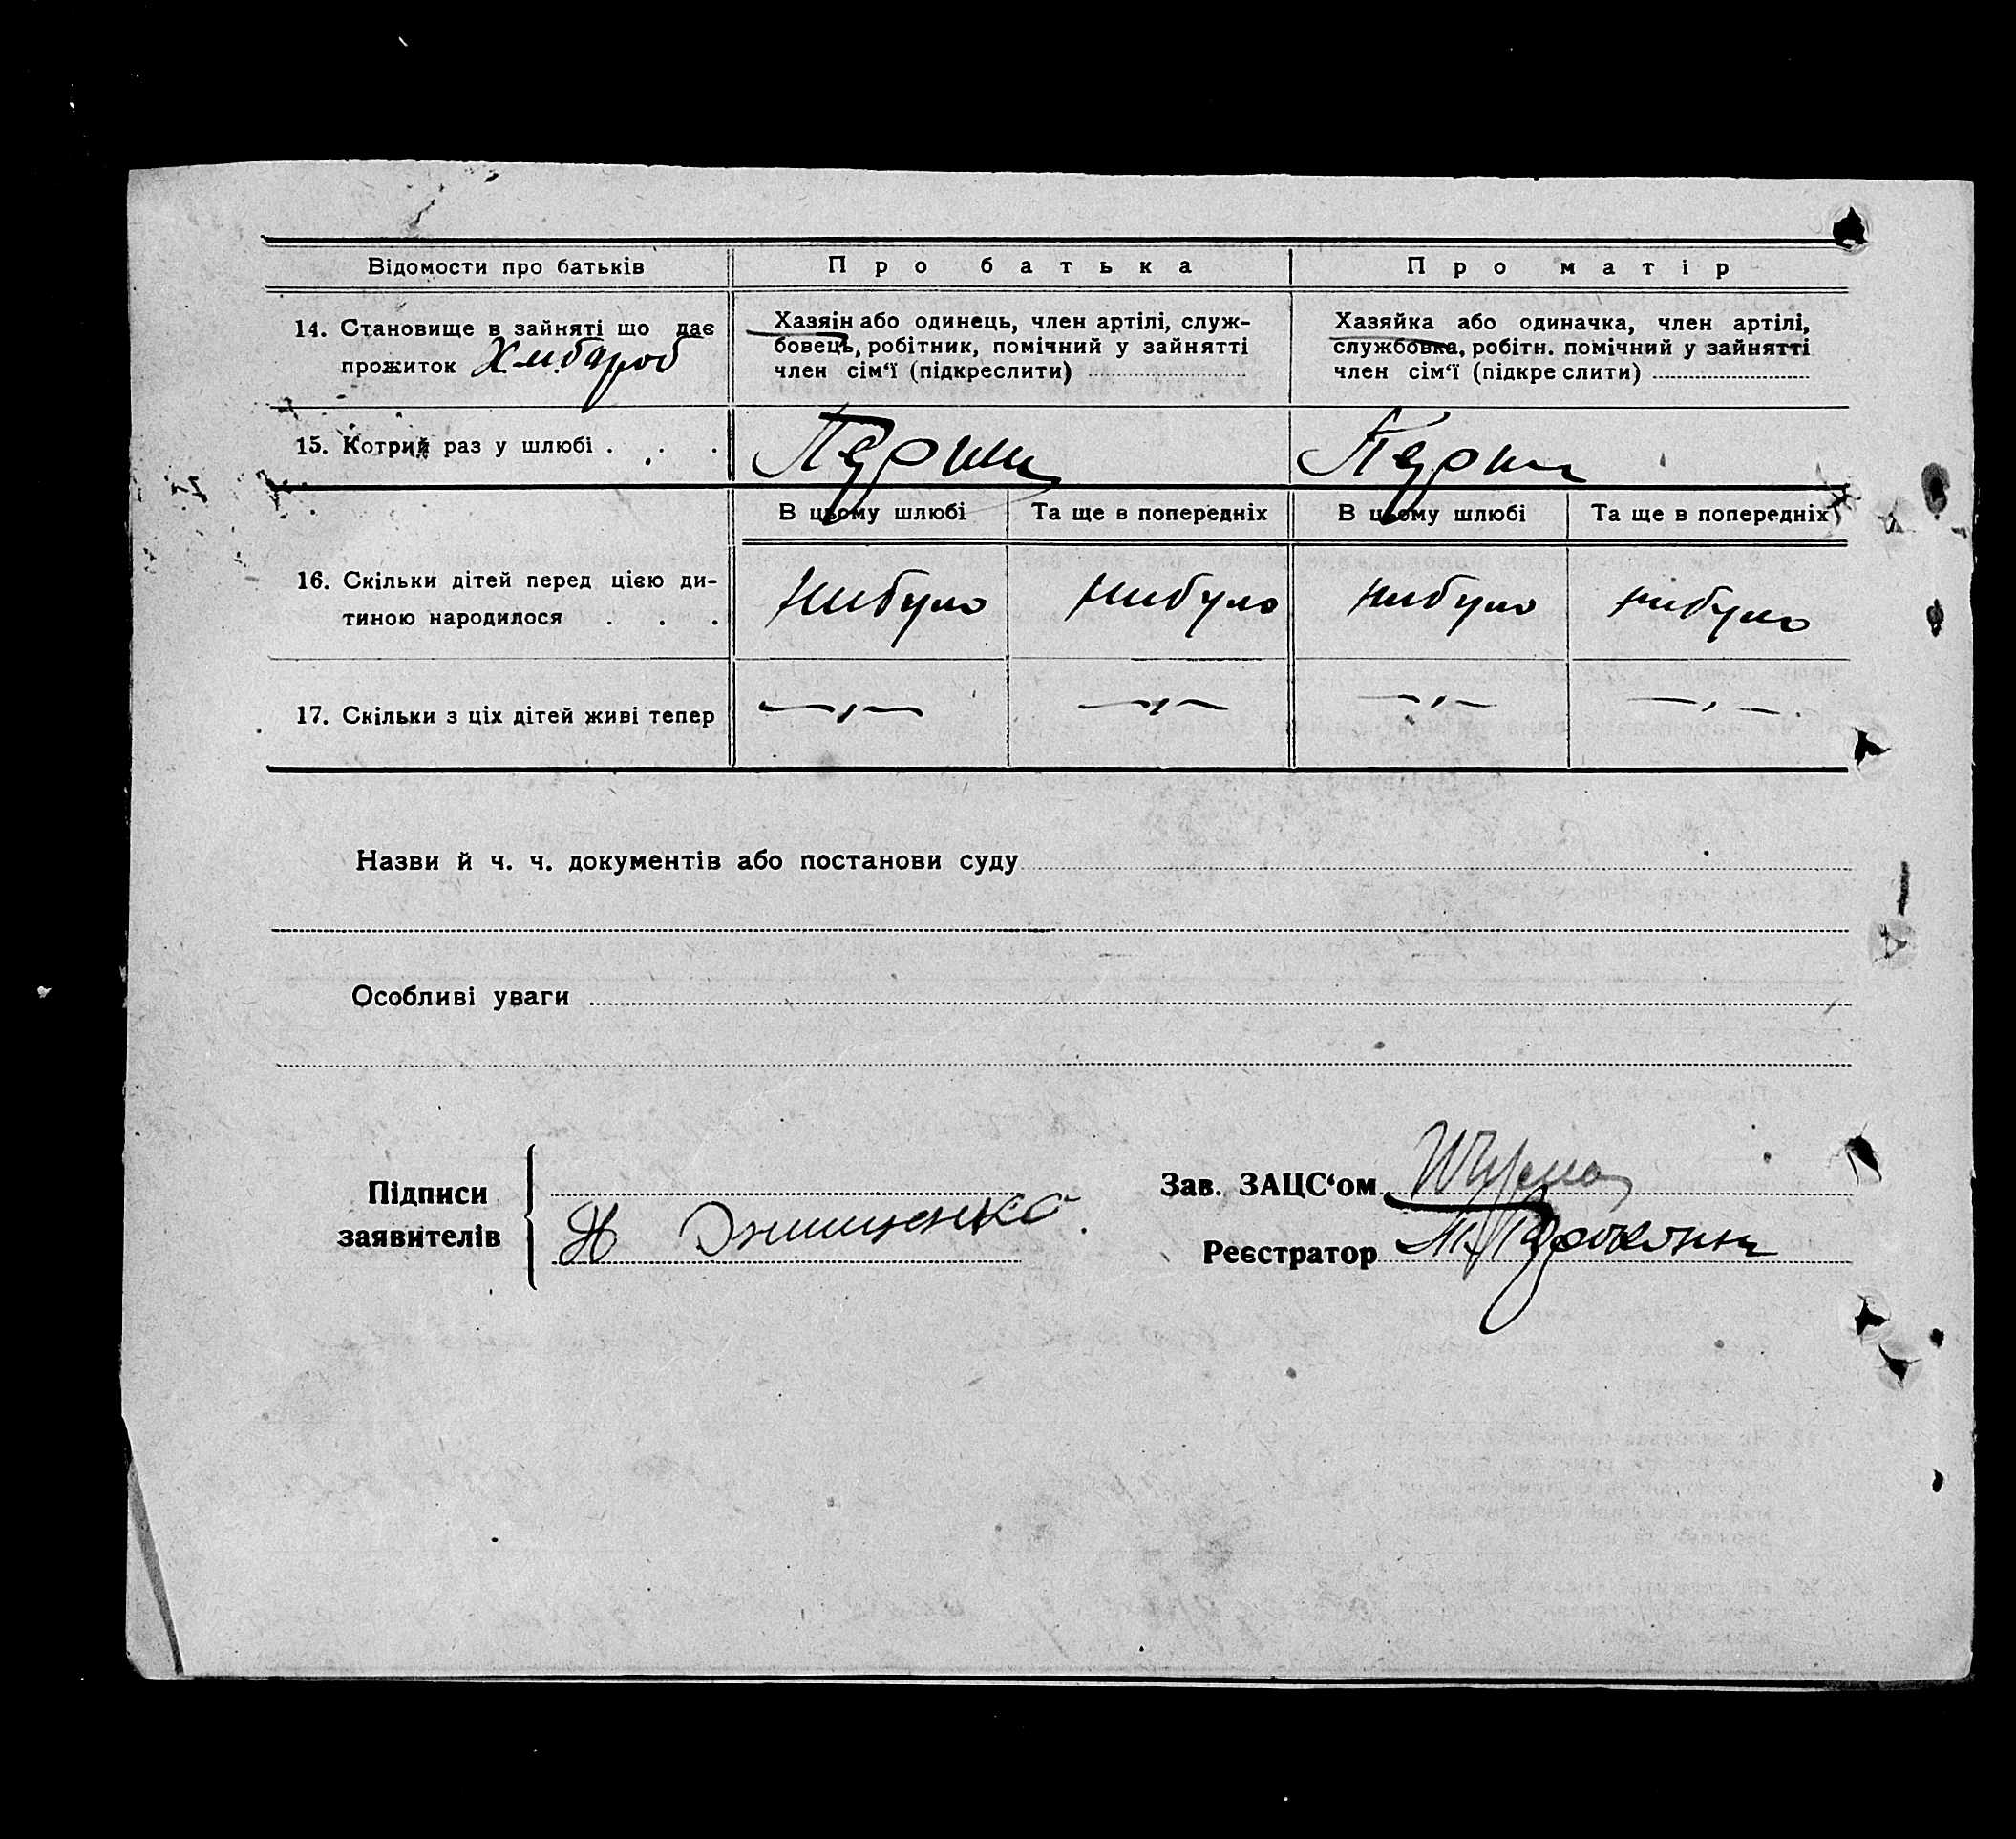 Відомости про батьків
Про батька
Про матір
14. Становище в зайняті що дає
прожиток Хлібороб
Хазяін або одинець, член артілі, служ-
бовець, робітник, помічний у зайнятті
член сім‘ї (підкреслити)
Хазяйка або одиначка, член артілі,
службовка, робітн. помічний у зайнятті
член сім‘ї (підкреслити)
15. Котрий раз у шлюбі . . .
Перший
Перший
В цьому шлюбі
Та ще в попередніх
В цьому шлюбі
Та ще в попередніх
16. Скільки дітей перед цією ди-
тиною народилося . . .
Нибуло
Нибуло
Нибуло
Нибуло
17. Скільки з ціх дітей живі тепер
—„—
—„—
—„—
—„—
Назви й ч. ч. документів або постанови суду
Особливі уваги
Підписи
заявителів
Онищенко
Зав. ЗАЦС‘ом
Реєстратор